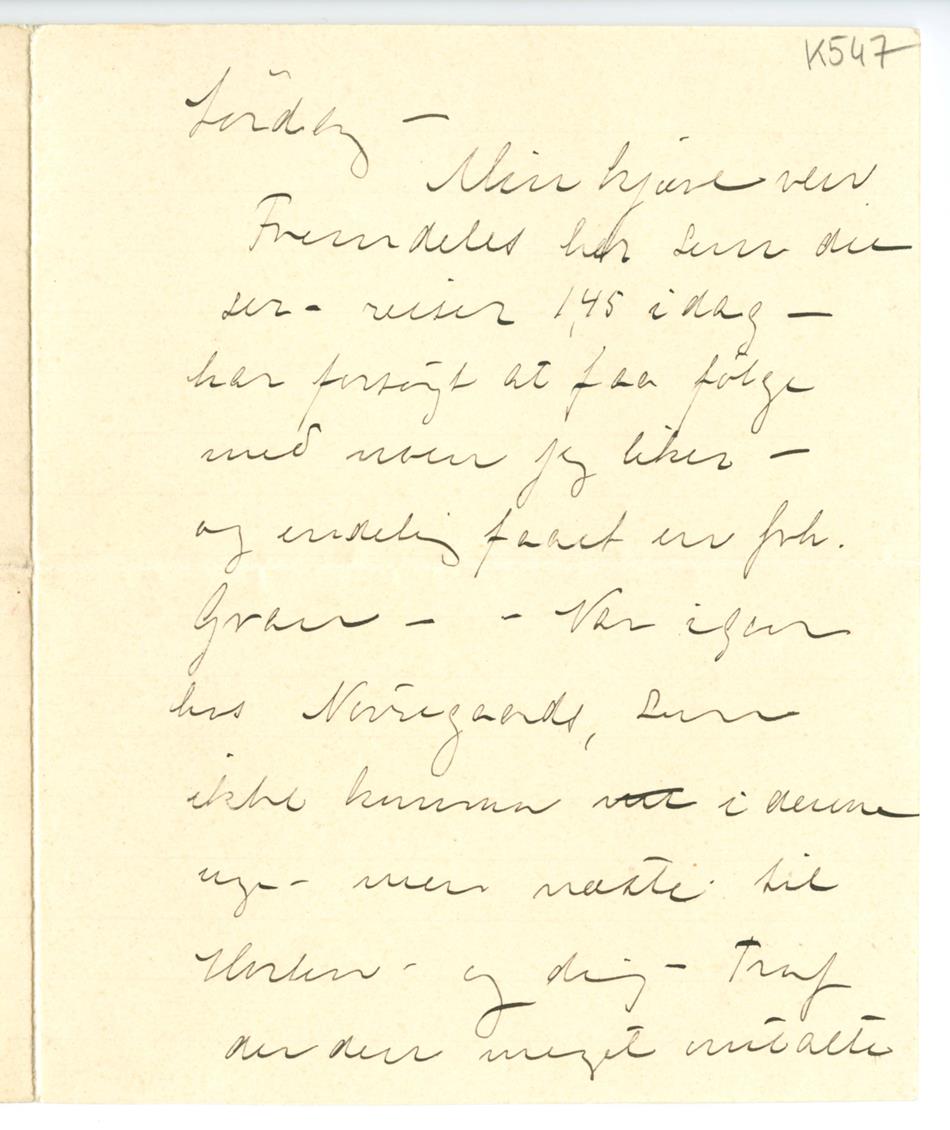 K547
Lördag —
Min kjære ven
Fremdeles her som du
ser - reiser 1,45 idag —
har forsögt at faa følge
med noen jeg liker —
og endelig faaet en frk.
Gran — - Var igaar
hos Nörregaards, som
ikke kommer i denne
uge - men næste til
Horten - og dig - Traf
der den meget omtalte